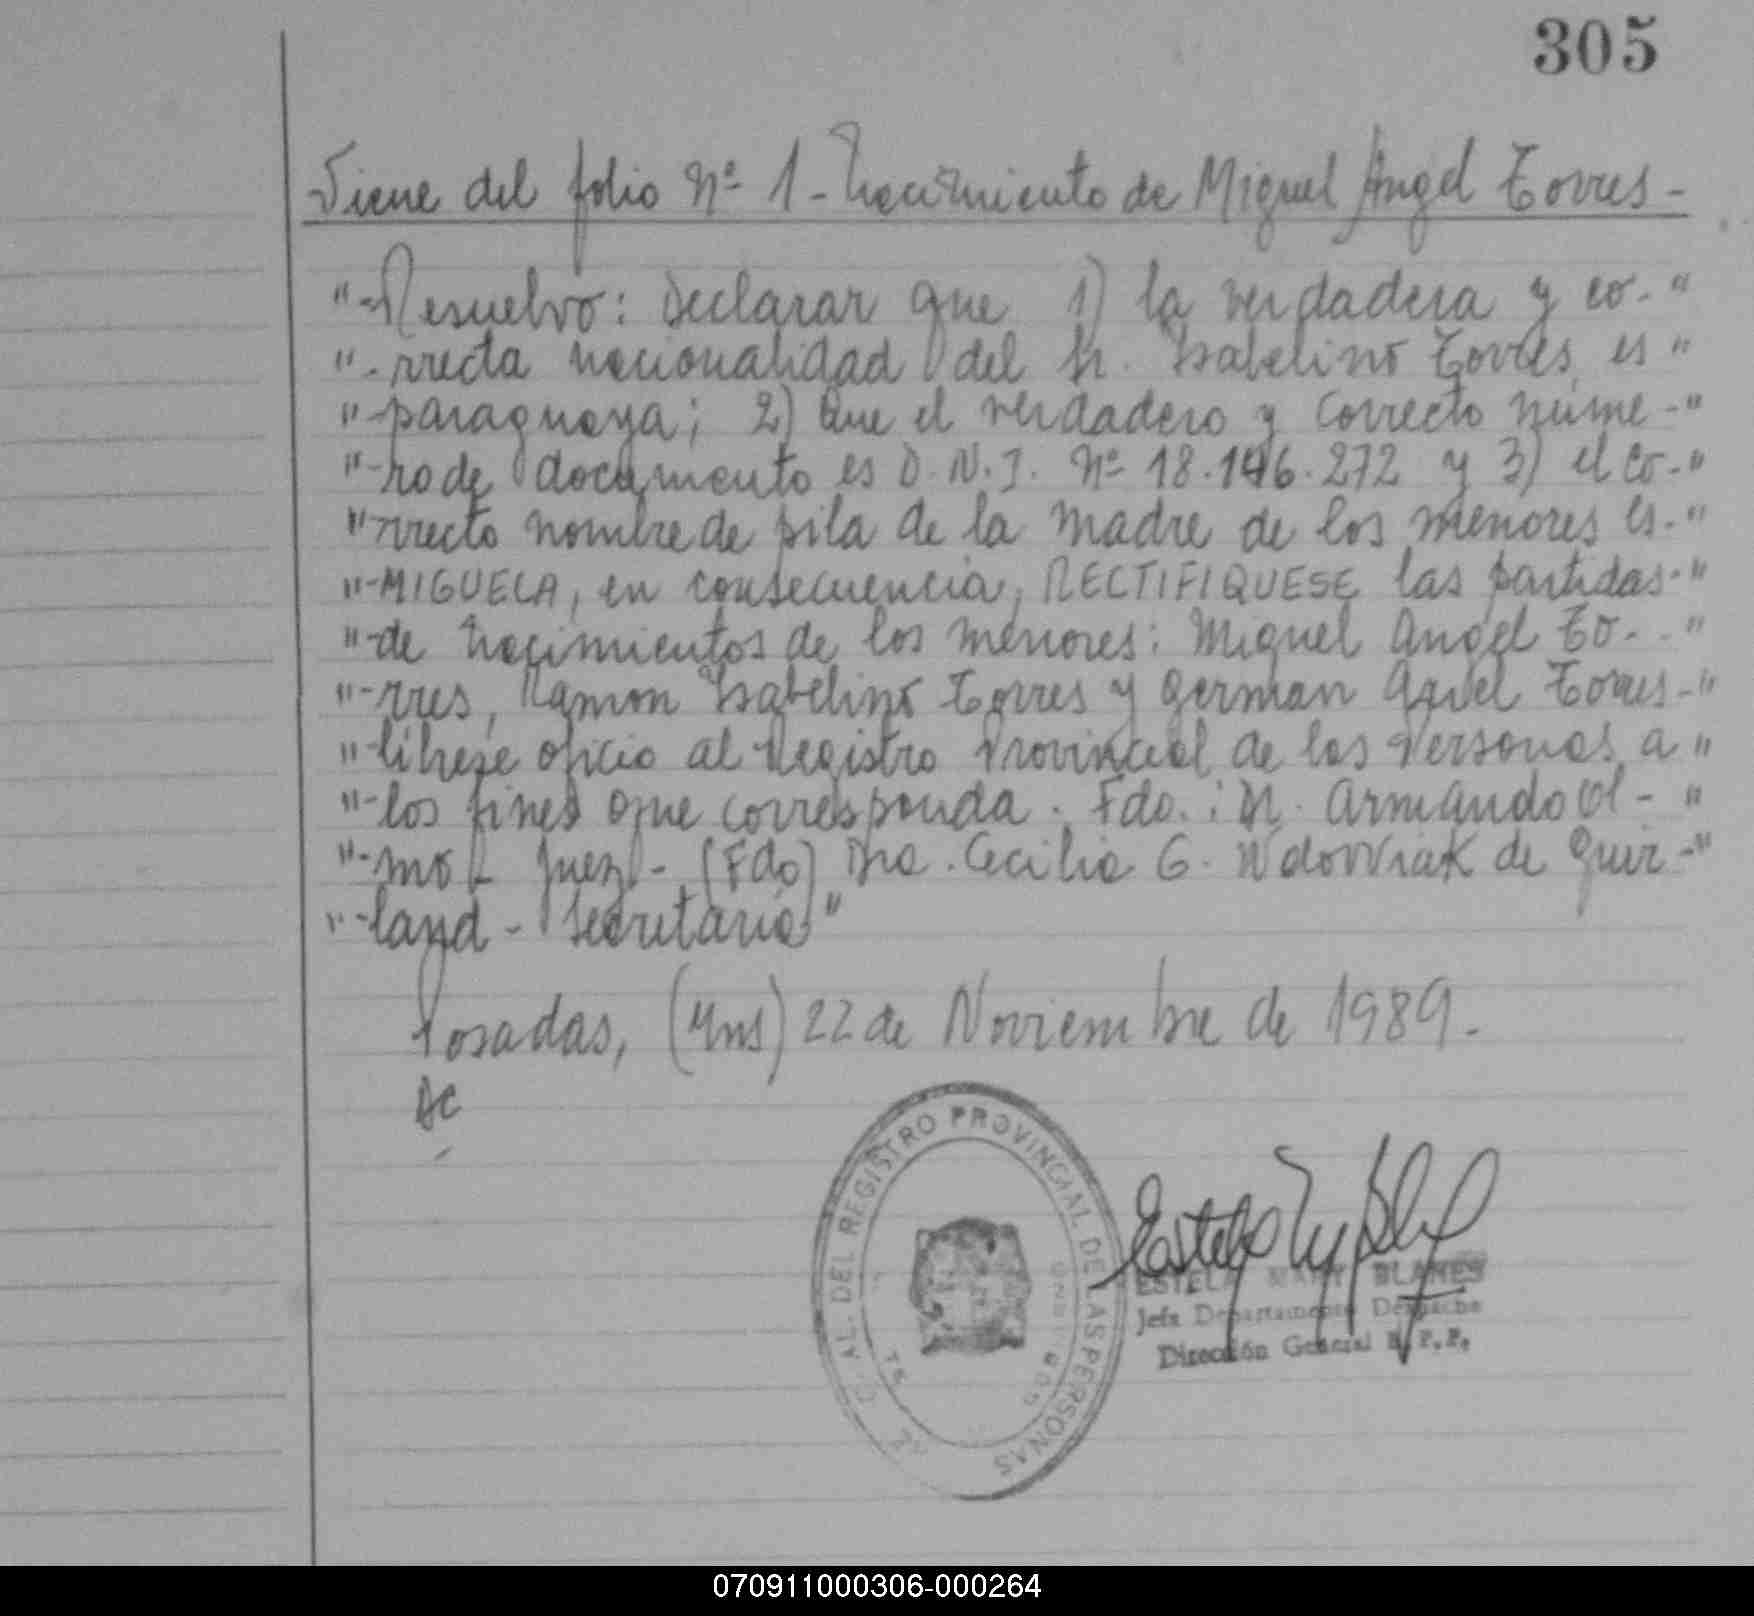 305
Viene del folio Nº 1 - Nacimiento de Miguel Angel Torres -
"-Resuelvo: Declarar que 1) la verdadera y co- "
"- rrecta nacionalidad del Sr. Isabelino Torres, es "
"-paraguaya; 2) Que el verdadero y correcto núme-"
"-ro de documento es D.N.I. Nº 18.146.272 y 3) el co-"
"-rrecto nombre de pila de la madre de los menores es-"
"-MIGUELA, en consecuencia, RECTIFIQUESE las partidas-"
"-de nacimientos de los menores: Miguel Angel To- - "
"-rres, Ramon Isabelino Torres y German Ariel Torres-"
"-librese oficio al Registro Provincial de las Personas a "
"-los fines que corresponda. Fdo.: Dr. Armando Ol- "
"-mo - Juez - (Fdo) Dra. Cecilia G. Wdowiak de Guir-"
"-land - Secretaria"
Posadas, (Mns) 22 de Noviembre de 1989.
AL. DEL REGISTRO PROVINCIAL DE LAS PERSONAS
ESTELA MARY BLANES
Jefa Departamento Despacho
Dirección General R.P.P.
070911000306-000264